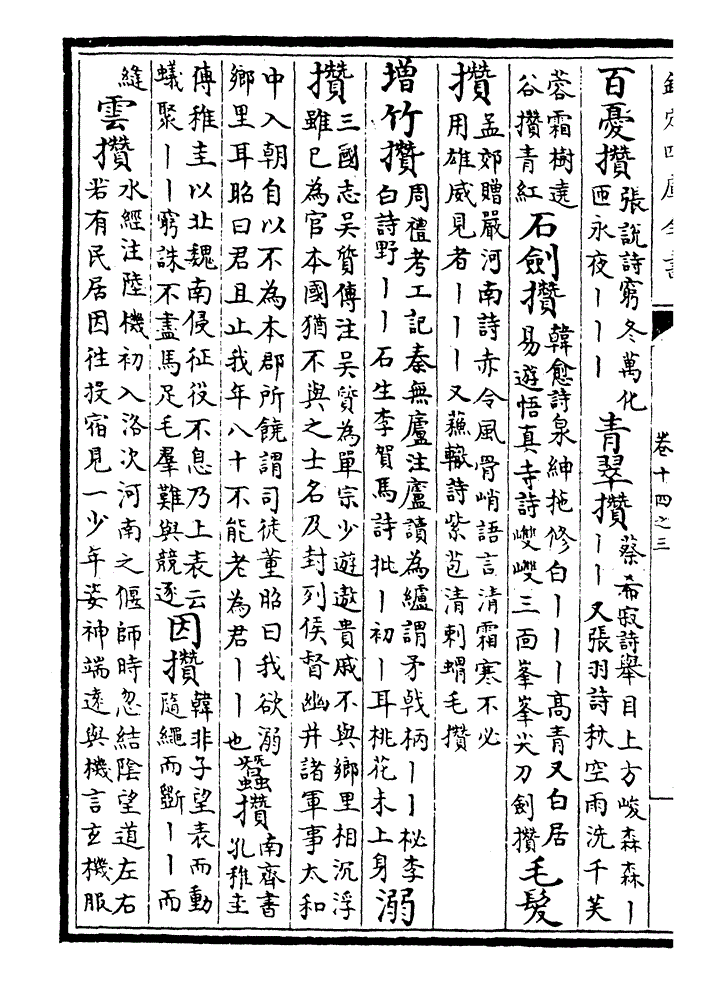 欽定四庫全書
卷十四之三
百憂攢 張說詩窮冬萬化
匝永夜丨丨丨
青翠攢 蔡希寂詩舉目上方峻森森丨
丨丨又張羽詩秋空雨洗千芙
蓉霜樹遠
谷攢青紅
石劍攢 韓愈詩泉紳拖修白丨丨丨高青又白居
易遊悟真寺詩㕠㕠三面峯峯尖刀劍攢
毛髮
攢 孟郊贈嚴河南詩赤令風骨峭語言清霜寒不必
用雄威見者丨丨丨又蘇轍詩紫苞清刺蝟毛攢
増竹攢 周禮考工記秦無廬注廬讀為纑謂矛戟柄丨丨柲李
白詩野丨丨石生李賀馬詩批丨初丨耳桃花未上身
溺
攢 三國志吳質傳注吳質為單宗少遊遨貴戚不與鄉里相沉浮
雖已為官本國猶不與之士名及封列侯督幽并諸軍事太和
中入朝自以不為本郡所饒謂司徒董昭曰我欲溺
鄉里耳昭曰君且止我年八十不能老為君丨丨也
蠶攢 南齊書
孔稚圭
傳稚圭以北魏南侵征役不息乃上表云
蟻聚丨丨窮誅不盡馬足毛羣難與競逐
因攢 韓非子望表而動
隨繩而斷丨丨而
縫
雲攢 水經注陸機初入洛次河南之偃師時忽結陰望道左右
若有民居因往投宿見一少年姿神端遠與機言玄機服